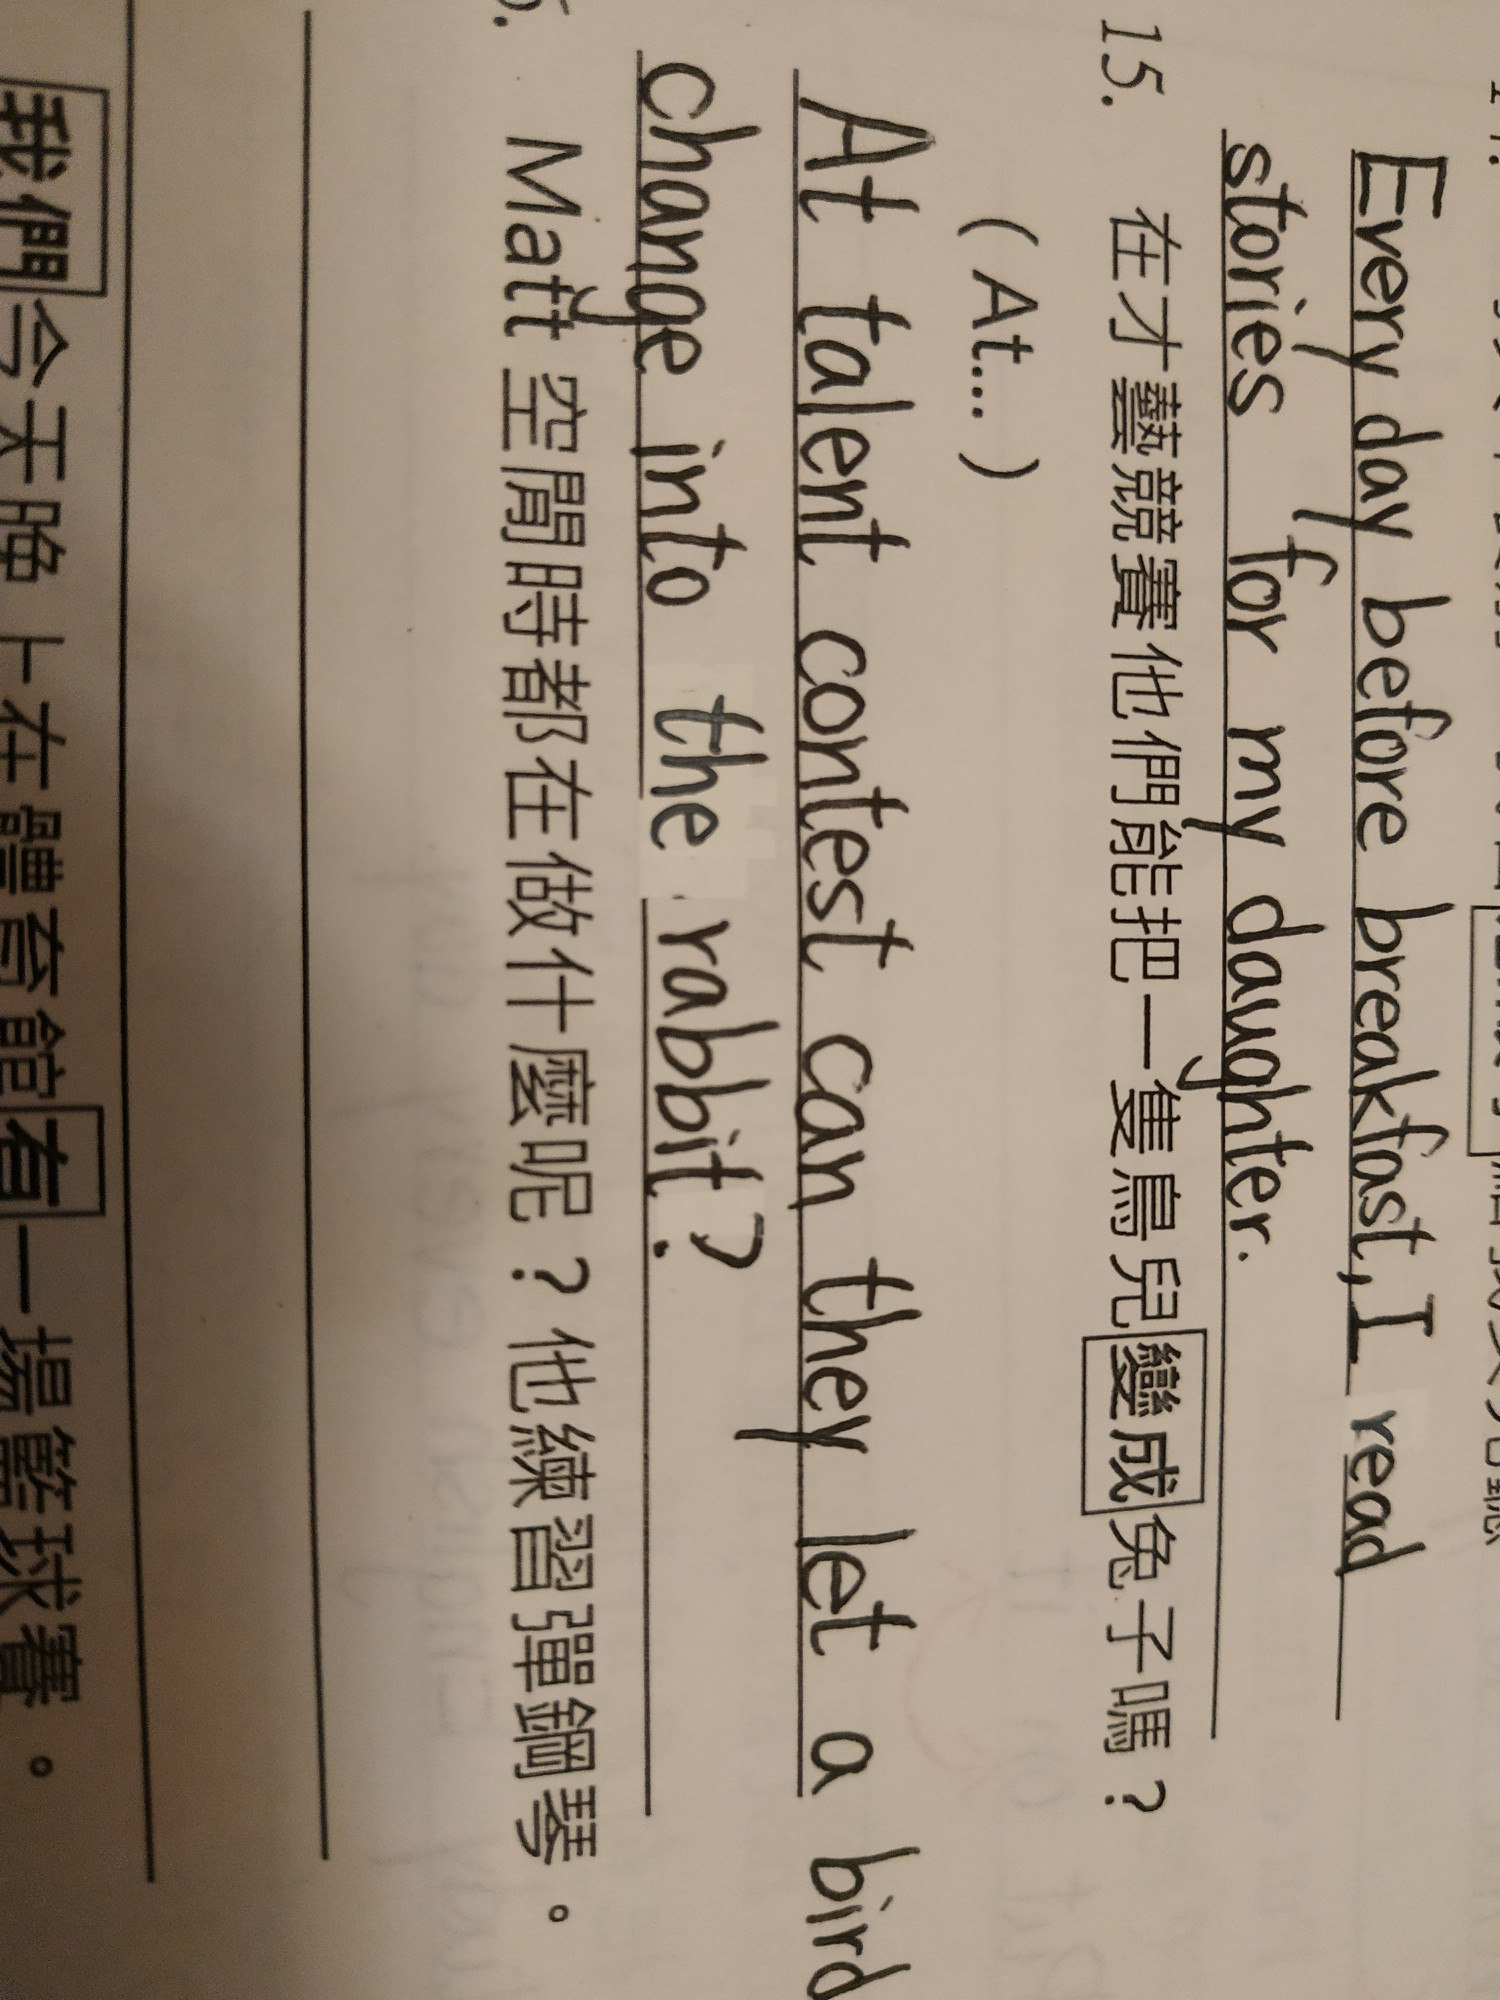 Every day before breakfast, I read
stories for my daughter.
15. 在才藝競賽他們能把一隻鳥兒變成兔子嗎？
( At... )
At talent contest can they let a bird
change into the rabbit?
Matt 空閒時都在做什麼呢？他練習彈鋼琴。
我們今天晚上在體育館有一場籃球賽。